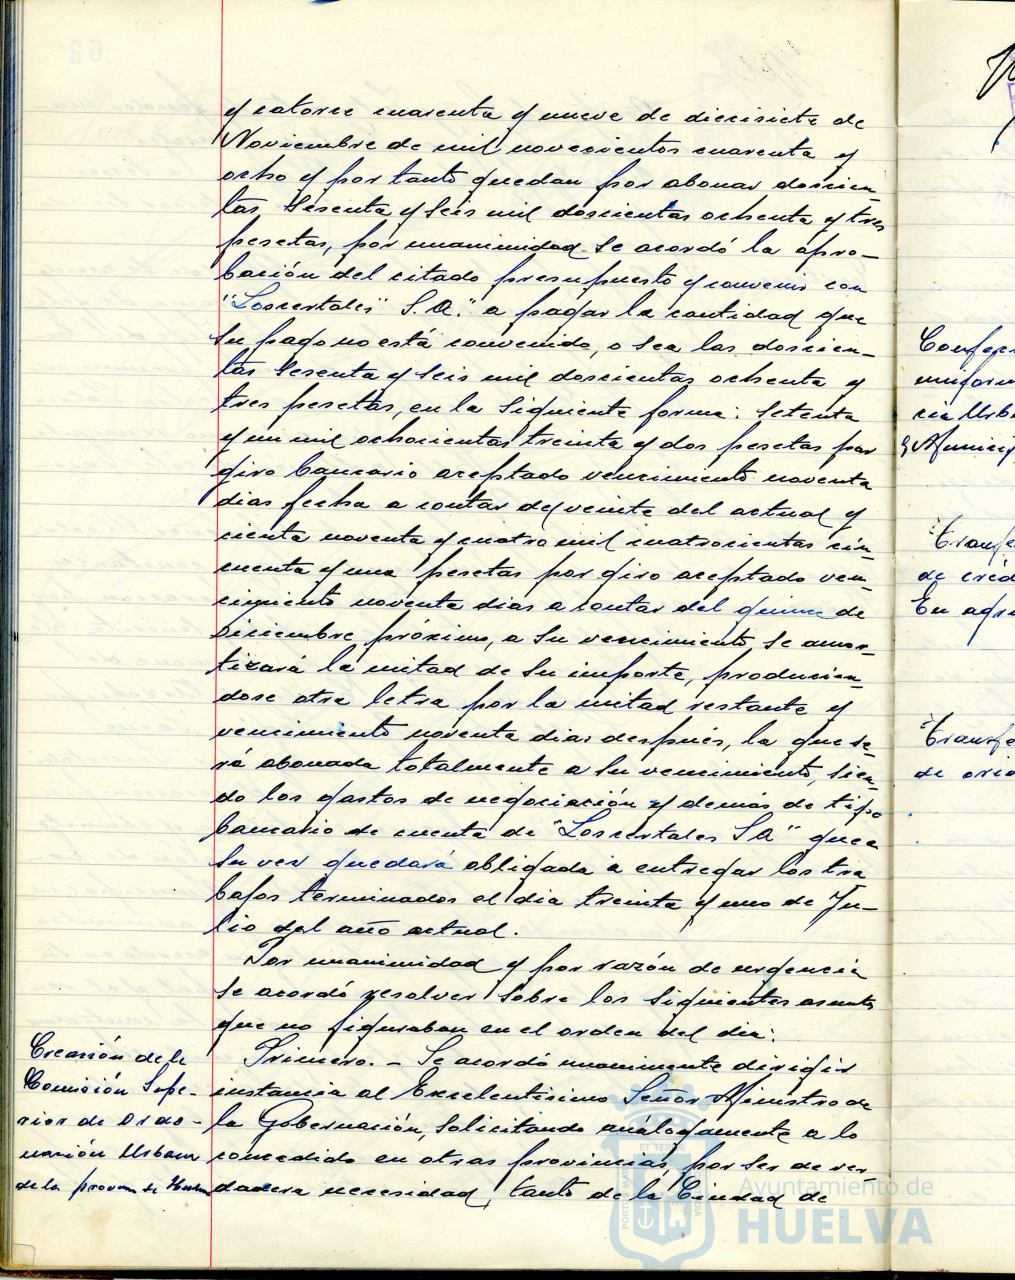 y catorce cuarenta y nueve de diecisiete de
Noviembre de mil novecientos cuarenta y
ocho y por tanto quedan por abonar doscien-
tas sesenta y seis mil doscientas ochenta y tres
pesetas, por unanimidad se acordó la apro-
bación del citado presupuesto y convenir con
"Loscertales" S.A." a pagar la cantidad que
su pago no está convenido, o sea las doscien-
tas sesenta y seis mil doscientas ochenta y
tres pesetas, en la siguiente forma: setenta
y un mil ochocientas treinta y dos pesetas por
giro bancario aceptado vencimiento noventa
dias fecha a contar del veinte del actual y
ciento noventa y cuatro mil cuatrocientas cin-
cuenta y una pesetas por giro aceptado ven-
cimiento noventa dias a contar del quince de
Diciembre próximo, a su vencimiento se amor-
tizará la mitad de su importe, producien-
dose otra letra por la mitad restante y
vencimiento noventa dias después, la que se-
rá abonada totalmente a su vencimiento, sien-
do los gastos de negociación y demás de tipo
bancario de cuenta de "Loscertales S A" que a
su vez quedará obligada a entregar los tra
bajos terminados el dia treinta y uno de Ju-
lio del año actual.
Por unanimidad y por razón de urgencia
se acordó resolver sobre los siguientes asuntos
que no figuraban en el orden del dia:
Creación de la
Comisión Supe-
rior de Orde-
nación Urbana
de la provin de Huelva
Primero. - Se acordó unanimente dirigir
instancia al Excelentisimo Señor Ministro de
la Gobernación, solicitando análogamente a lo
concedido en otras provincias, por ser de ver-
dadera necesidad, tanto de la Ciudad de
Ayuntamiento de
HUELVA